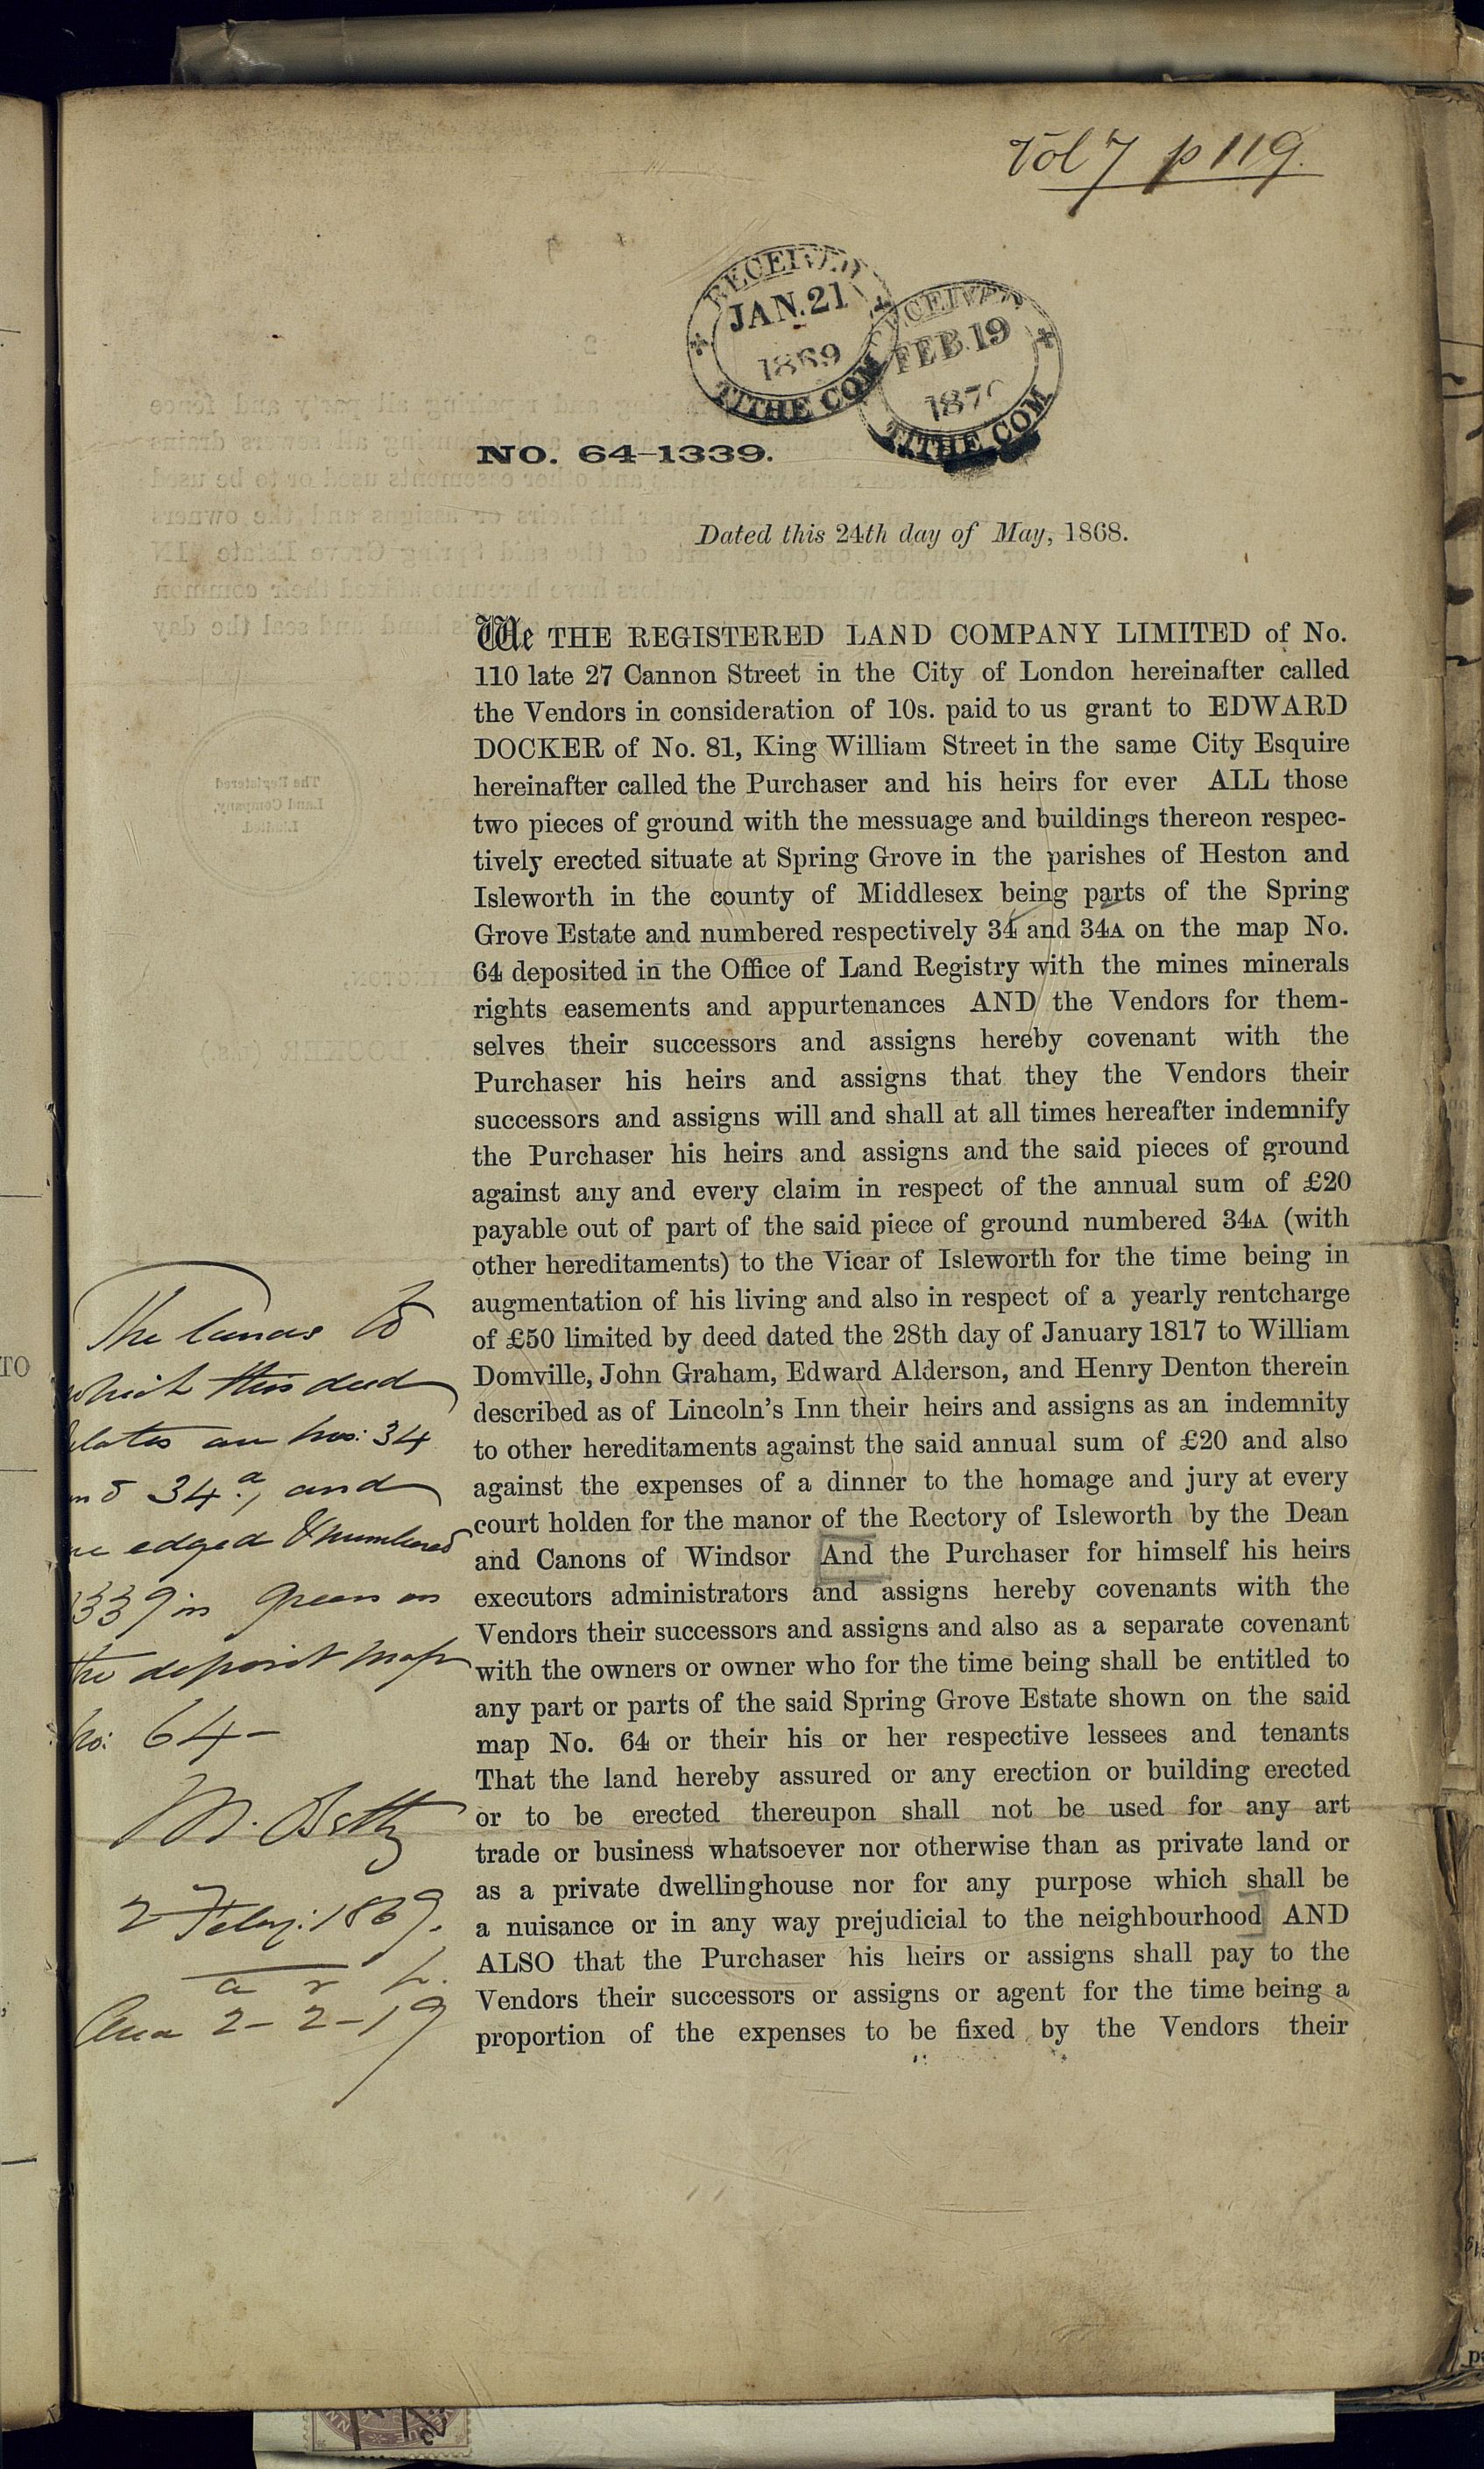 Vol 7 p 119.
RECEIVED
JAN. 21
1869
TITHE COM
RECEIVED
FEB. 19
187
TITHE COM
NO. 64-1339.
Dated this 24th day of May, 1868.
We THE REGISTERED LAND COMPANY LIMITED of No.
110 late 27 Cannon Street in the City of London hereinafter called
the Vendors in consideration of 10s. paid to us grant to EDWARD
DOCKER of No. 81, King William Street in the same City Esquire
hereinafter called the Purchaser and his heirs for ever ALL those
two pieces of ground with the messuage and buildings thereon respec-
tively erected situate at Spring Grove in the parishes of Heston and
Isleworth in the county of Middlesex being parts of the Spring
Grove Estate and numbered respectively 34 and 34A on the map No.
64 deposited in the Office of Land Registry with the mines minerals
rights easements and appurtenances AND the Vendors for them-
selves their successors and assigns hereby covenant with the
Purchaser his heirs and assigns that they the Vendors their
successors and assigns will and shall at all times hereafter indemnify
the Purchaser his heirs and assigns and the said pieces of ground
against any and every claim in respect of the annual sum of £20
payable out of part of the said piece of ground numbered 34A (with
other hereditaments) to the Vicar of Isleworth for the time being in
augmentation of his living and also in respect of a yearly rentcharge
of £50 limited by deed dated the 28th day of January 1817 to William
Domville, John Graham, Edward Alderson, and Henry Denton therein
described as of Lincoln's Inn their heirs and assigns as an indemnity
to other hereditaments against the said annual sum of £20 and also
against the expenses of a dinner to the homage and jury at every
court holden for the manor of the Rectory of Isleworth by the Dean
and Canons of Windsor And the Purchaser for himself his heirs
executors administrators and assigns hereby covenants with the
Vendors their successors and assigns and also as a separate covenant
with the owners or owner who for the time being shall be entitled to
any part or parts of the said Spring Grove Estate shown on the said
map No. 64 or their his or her respective lessees and tenants
That the land hereby assured or any erection or building erected
or to be erected thereupon shall not be used for any art
trade or business whatsoever nor otherwise than as private land or
as a private dwellinghouse nor for any purpose which shall be
a nuisance or in any way prejudicial to the neighbourhood AND
ALSO that the Purchaser his heirs or assigns shall pay to the
Vendors their successors or assigns or agent for the time being a
proportion of the expenses to be fixed by the Vendors their
The lands to
which this deed
relates are nos: 34
and 34a, and
are edged & numbered
1339 in green on
the deposit map
No: 64-
2 Feby: 1869.
a r p.
Area 2-2-19
TO